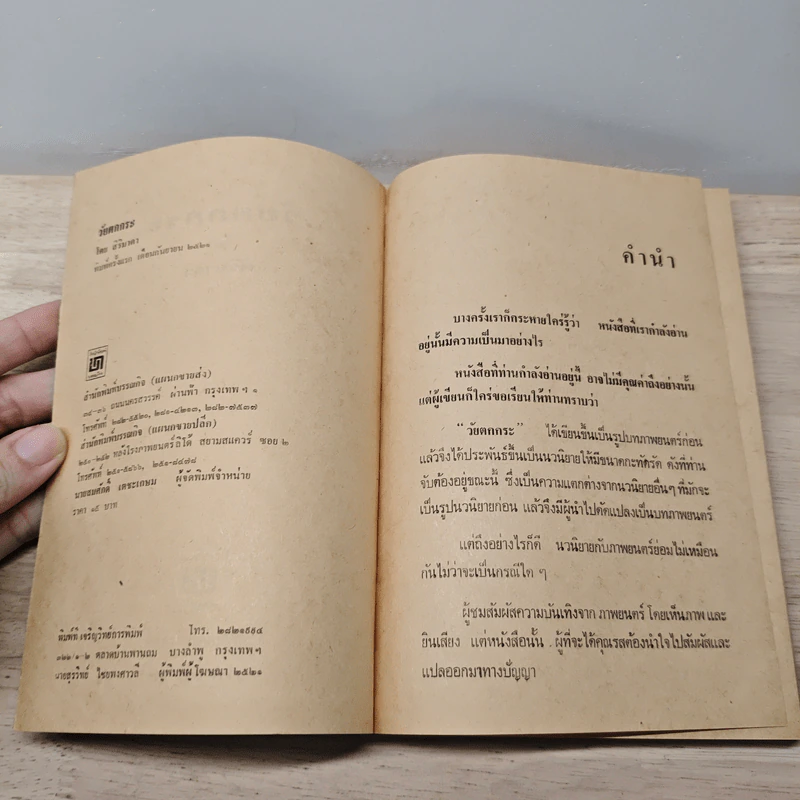 วัยตกกระ
โดย สีวิกาดา
พิมพ์ครั้งแรก เดือนกันยายน ๒๕๒๑
สำนักพิมพ์บรรณกิจ (แผนกขายส่ง)
๓๔-๓๖ ถนนนครสวรรค์ ผ่านฟ้า กรุงเทพฯ ๑
โทรศัพท์ ๒๘๒-๕๕๒๐, ๒๘๑-๔๒๑๓, ๒๘๒-๗๕๓๗
สำนักพิมพ์บรรณกิจ (แผนกขายปลีก)
๒๕๐-๒๕๒ หลังโรงภาพยนตร์ลิโด้ สยามสแควร์ ซอย ๒
โทรศัพท์ ๒๕๑-๕๘๖๖, ๒๕๑-๘๔๗๘
นายสมศักดิ์ เตชะเกษม ผู้จัดพิมพ์จำหน่าย
ราคา ๑๕ บาท
พิมพ์ที่ เจริญวิทย์การพิมพ์ โทร. ๒๘๒๑๕๕๔
๓๒๒/๑-๒ ตลาดบ้านพานถม บางลำพู กรุงเทพฯ
นายสุรวิทย์ ไชยพงศาวลี ผู้พิมพ์ผู้โฆษณา ๒๕๒๑
คำนำ
บางครั้งเราก็กระหายใคร่รู้ว่า หนังสือที่เรากำลังอ่าน
อยู่นั้นมีความเป็นมาอย่างไร
หนังสือที่ท่านกำลังอ่านอยู่นี้ อาจไม่มีคุณค่าถึงอย่างนั้น
แต่ผู้เขียนก็ใคร่ขอเรียนให้ท่านทราบว่า
"วัยตกกระ" ได้เขียนขึ้นเป็นรูปบทภาพยนตร์ก่อน
แล้วจึงได้ประพันธ์ขึ้นเป็นนวนิยายให้มีขนาดกะทัดรัด ดังที่ท่าน
จับต้องอยู่ขณะนี้ ซึ่งเป็นความแตกต่างจากนวนิยายอื่นๆ ที่มักจะ
เป็นรูปนวนิยายก่อน แล้วจึงมีผู้นำไปดัดแปลงเป็นบทภาพยนตร์
แต่ถึงอย่างไรก็ดี นวนิยายกับภาพยนตร์ย่อมไม่เหมือน
กันไม่ว่าจะเป็นกรณีใด ๆ
ผู้ชมสัมผัสความบันเทิงจาก ภาพยนตร์ โดยเห็นภาพ และ
ยินเสียง แต่หนังสือนั้น ผู้ที่จะได้คุณรสต้องนำใจไปสัมผัสและ
แปลออกมาทางปัญญา